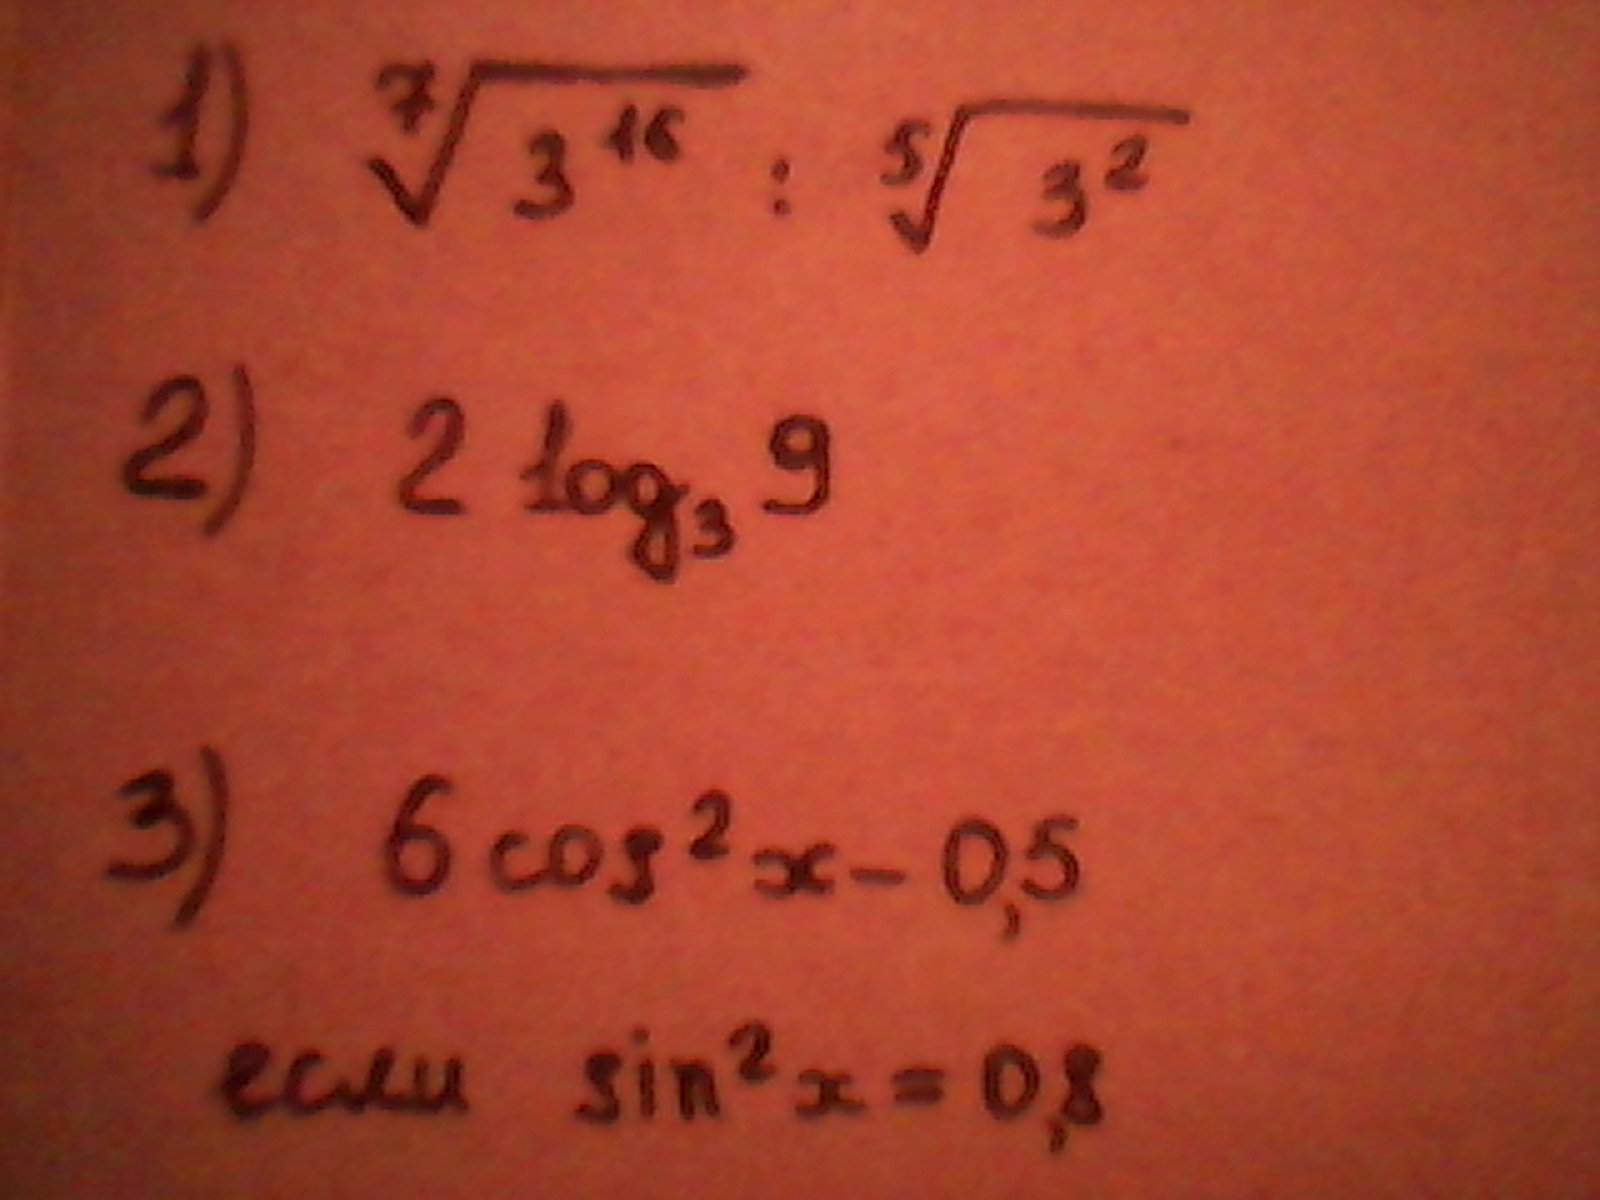 1) ⁷√3¹⁶ : ⁵√3²
2) 2 log₃ 9
3) 6 cos² x – 0,5
если sin² x = 0,8